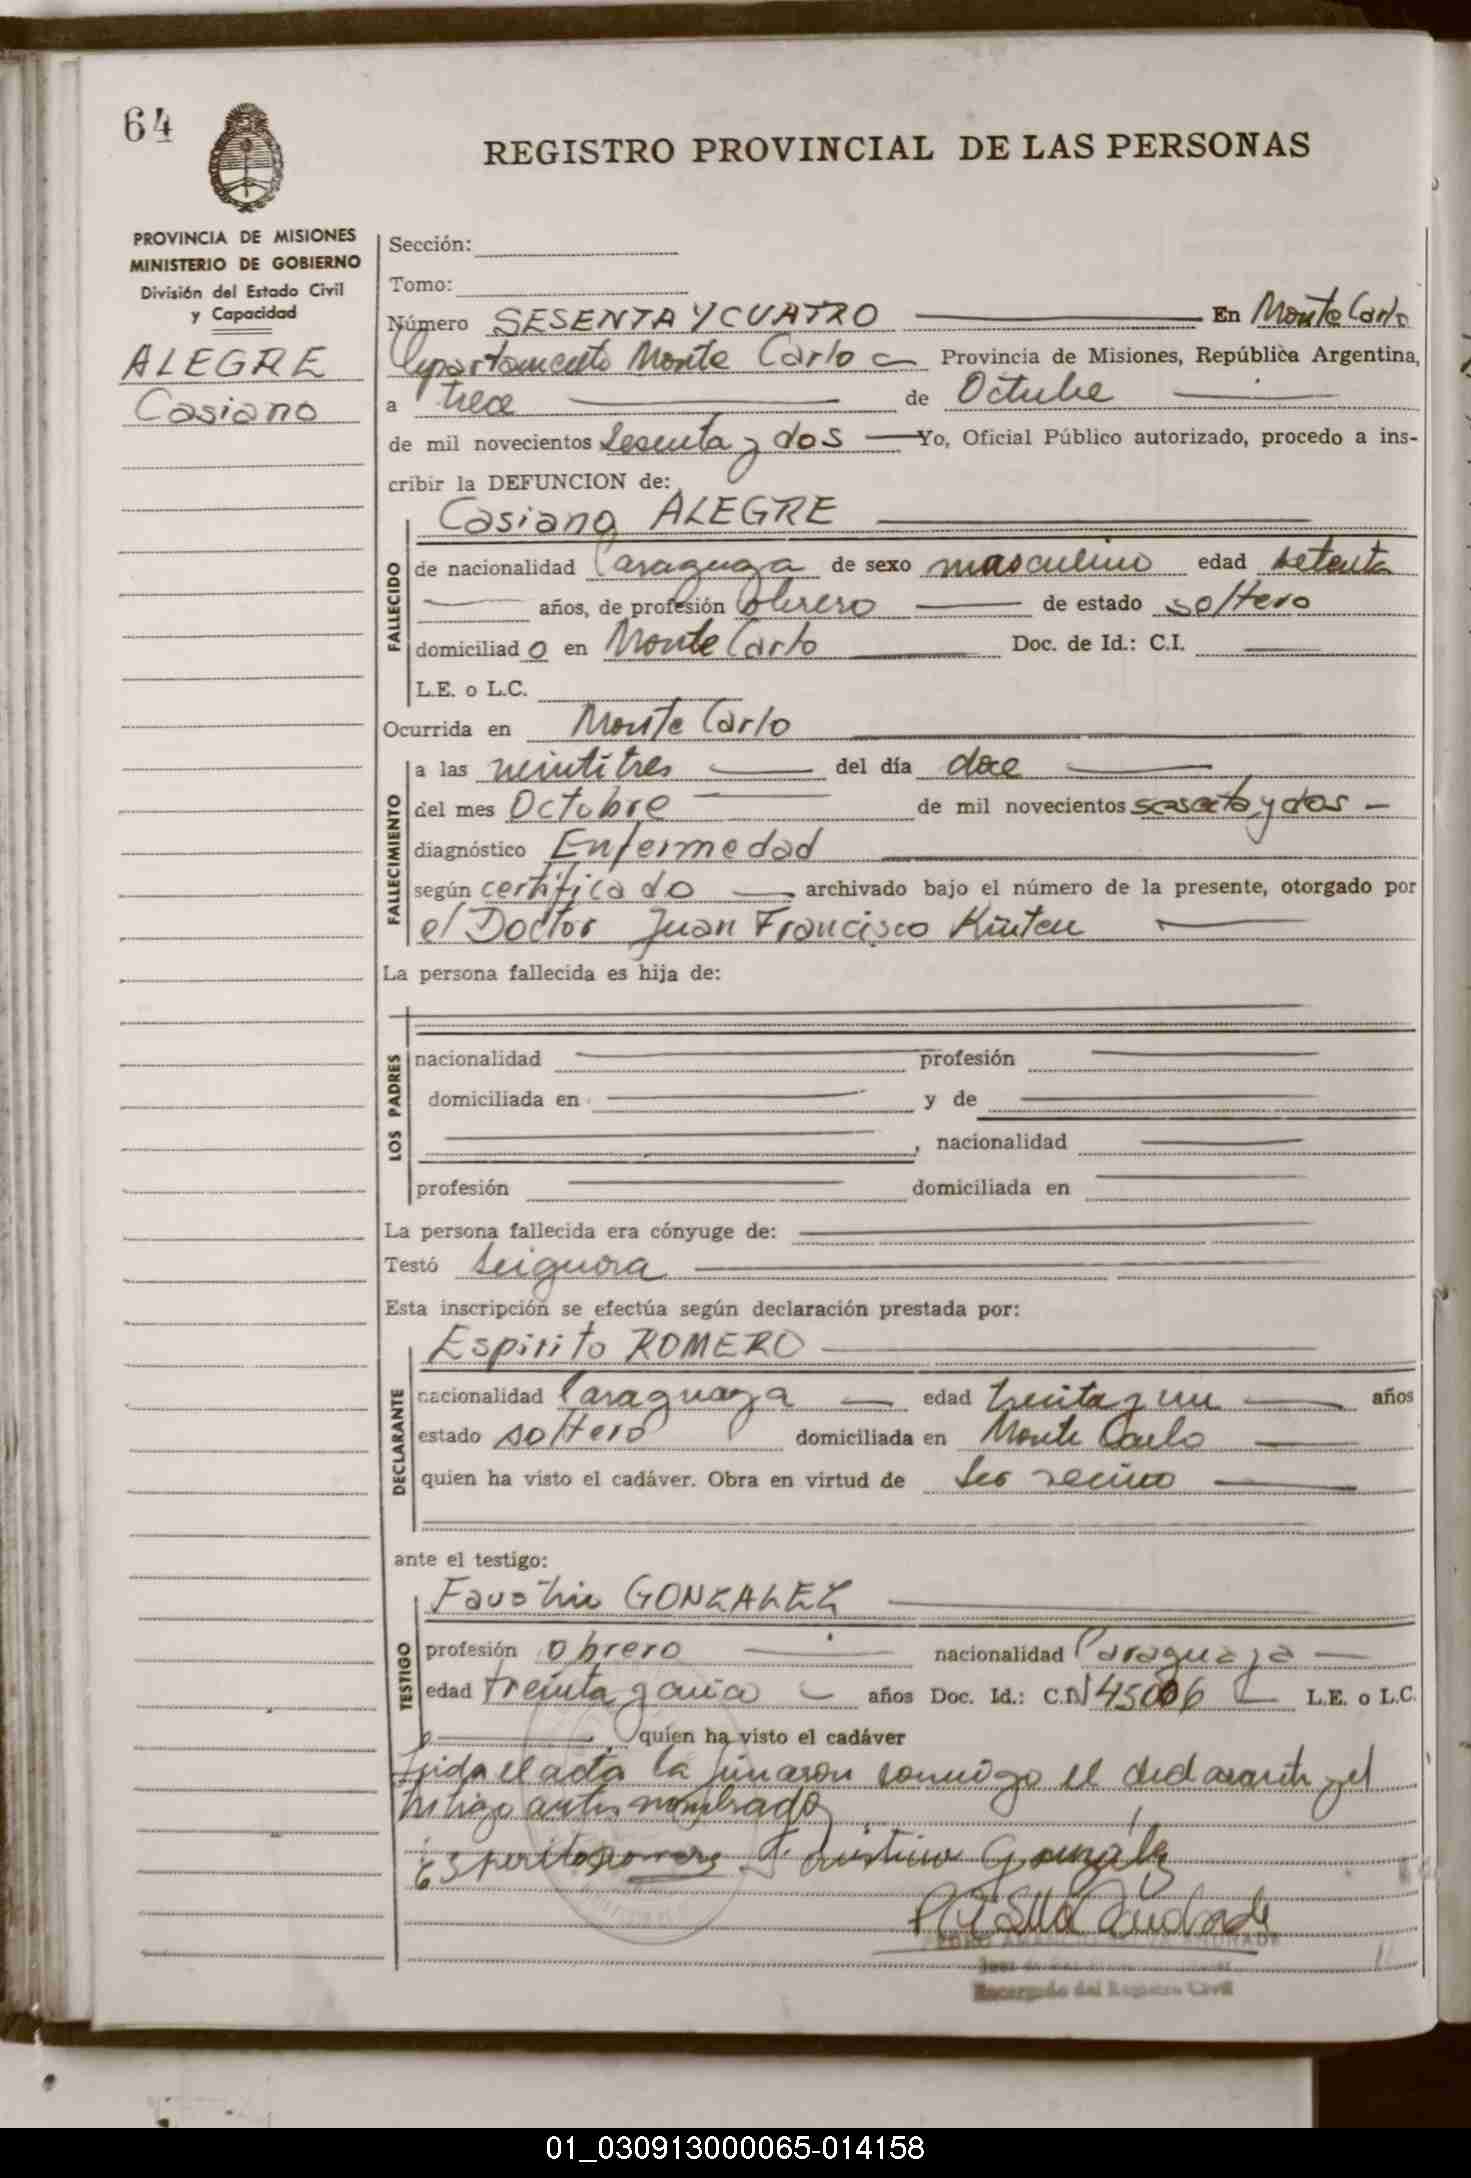 64
REGISTRO PROVINCIAL DE LAS PERSONAS
PROVINCIA DE MISIONES
MINISTERIO DE GOBIERNO
División del Estado Civil
y Capacidad
ALEGRE
Casiano
Sección:
Tomo:
Número SESENTA Y CUATRO En Monte Carlo
Departamento Monte Carlo Provincia de Misiones, República Argentina,
a trece de Octubre
de mil novecientos sesenta y dos Yo, Oficial Público autorizado, procedo a ins-
cribir la DEFUNCION de:
Casiano ALEGRE
FALLECIDO
de nacionalidad Paraguaya de sexo masculino edad setenta
años, de profesión obrero de estado soltero
domiciliado en Monte Carlo Doc. de Id.: C.I.
L.E. o L.C.
Ocurrida en Monte Carlo
FALLECIMIENTO
a las veintitres del día doce
del mes Octubre de mil novecientos sesenta y dos
diagnóstico Enfermedad
según certificado archivado bajo el número de la presente, otorgado por
el Doctor Juan Francisco
La persona fallecida es hija de:
LOS PADRES
nacionalidad profesión
domiciliada en y de
, nacionalidad
profesión domiciliada en
La persona fallecida era cónyuge de:
Testó
Esta inscripción se efectúa según declaración prestada por:
Espirito ROMERO
DECLARANTE
nacionalidad Paraguaya edad treinta y un años
estado soltero domiciliada en Monte Carlo
quien ha visto el cadáver. Obra en virtud de ser vecino
ante el testigo:
Faustino GONZALEZ
TESTIGO
profesión obrero nacionalidad Paraguaya
edad treinta y cinco años Doc. Id.: C.I. 45006 L.E. o L.C.
quien ha visto el cadáver
Leida el acta la firmaron conmigo el declarante y el
testigo antes nombrado
Esperito Romero Faustino Gonzalez
Encargado del Registro Civil
01_030913000065-014158